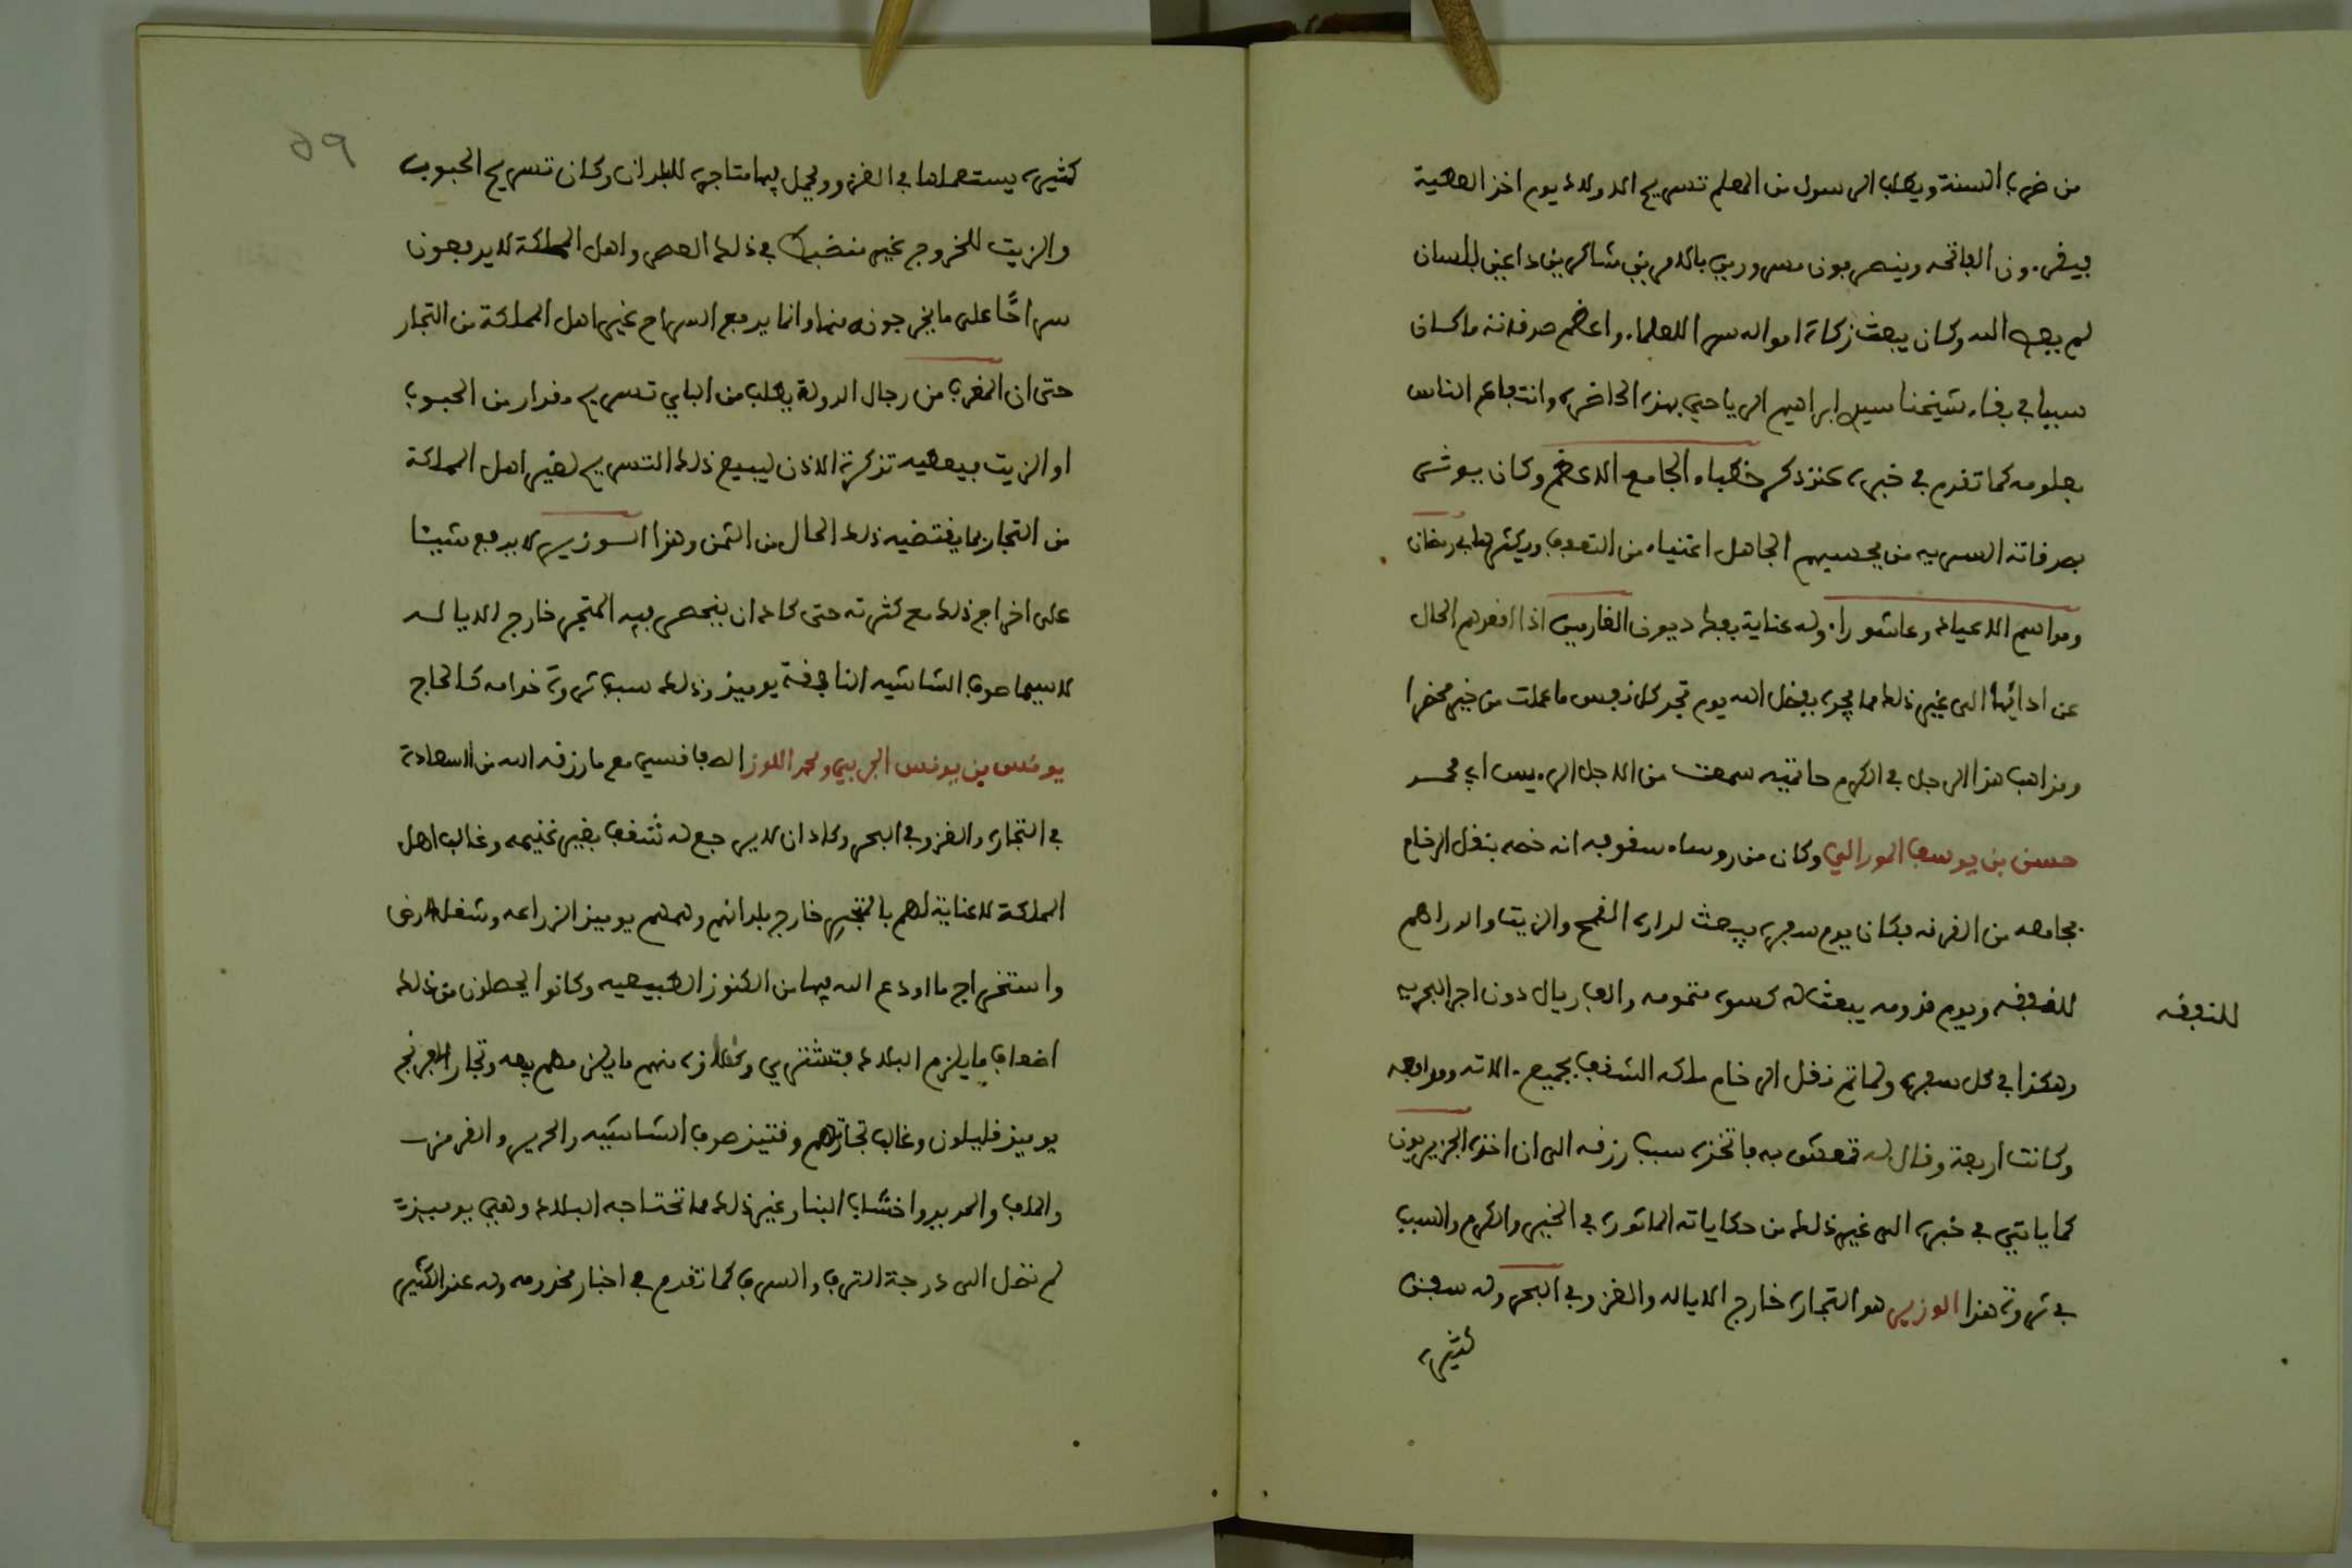 من ضرب السنة ويطلب الرسول من المعلم تسريح الاولاد يوم اخذ العطية
فيقرءون الفاتحة وينصرفون مسرورين بالامرين شاكرين داعين بلسان
لم يعص الله وكان يبعث زكاة امواله سرا للعلماء واعظم صدقاته ما كان
سببا في بقاء شيخنا سيدي ابراهيم الرياحي بهذه الحاضرة وانتفاع الناس
بعلومه كما تقدم في خبره عند ذكر خطباء الجامع الاعظم وكان يوثر
بصدقاته السرية من يحسبهم الجاهل اغنياء من التعفف ويكثرها في رمضان
ومواسم الاعياد وعاشوراء وله عناية بفك ديون الغارمين اذا اقعدهم الحال
عن ادائها الى غير ذلك مما يجده بفضل الله يوم تجد كل نفس ما عملت من خير محضرا
ومذاهب هذا الرجل في الكرم حاتمية سمعت من الاجل الريس ابي محمد
حسن بن يوسف المورالي وكان من روساء سفنه انه خصه بنقل الرخام
لجامعه من القرنة فكان يوم سفره يبعث لداره القمح والزيت والدراهم
للنفقة ويوم قدومه يبعث له كسوة متمومة والف ريال دون اجر البحرية
للنفقة
وهكذا في كل سفرة ولما تم نقل الرخام ملكه الشقف بجميع الاته ومدافعه
وكانت اربعة وقال له تمعش به فاتخذه سبب رزقه الى ان اخذه الجزيريون
كما ياتي في خبره الى غير ذلك من حكاياته الماثورة في الخير والكرم والسبب
في ثروة هذا الوزير هو التجارة خارج الايالة والغزو في البحر وله سفن
كثيرة
69
كثيرة يستعملها في الغزو ويحمل فيها متاجره للبلدان وكان تسريح الحبوب
والزيت للخروج غير منضبط في ذلك العصر واهل المملكة لا يدفعون
سراحًا على ما يخرجونه منها وانما يدفع السراح غير اهل المملكة من التجار
حتى ان المقرب من رجال الدولة يطلب من الباي تسريح مقدار من الحبوب
او الزيت فيعطيه تذكرة الاذن ليبيع ذلك التسريح لغير اهل المملكة
من التجار بما يقتضيه ذلك الحال من الثمن وهذا الوزير لا يدفع شيئا
على اخراج ذلك مع كثرته حتى كاد ان ينحصر فيه المتجر خارج الايالة
لا سيما صوف الشاشية النافقة يوميذ وذلك سبب ثروة خدامه كالحاج
يونس بن يونس الجربي ومحمد اللوز الصفاقسي مع ما رزقه الله من السعادة
في التجارة والغزو في البحر وكاد ان لا يرجع له شقف بغير غنيمة وغالب اهل
المملكة لا عناية لهم بالمتجر خارج بلدانهم وهمهم يوميذ الزراعة وشغل الارض
واستخراج ما اودع الله فيها من الكنوز الطبيعية وكانوا يحصلون من ذلك
اضعاف ما يلزم البلاد فتشتري منهم ما يلزمهم بيعه وتجار الافرنج
يوميذ قليلون وغالب تجارتهم وقتيذ صوف الشاشية والحرير والقرمز
والملف والحديد واخشاب البناء وغير ذلك مما تحتاجه البلاد وهي يوميذ
لم تصل الى درجة الترف والسرف كما تقدم في اخبار مخدومه وله عند الكثير